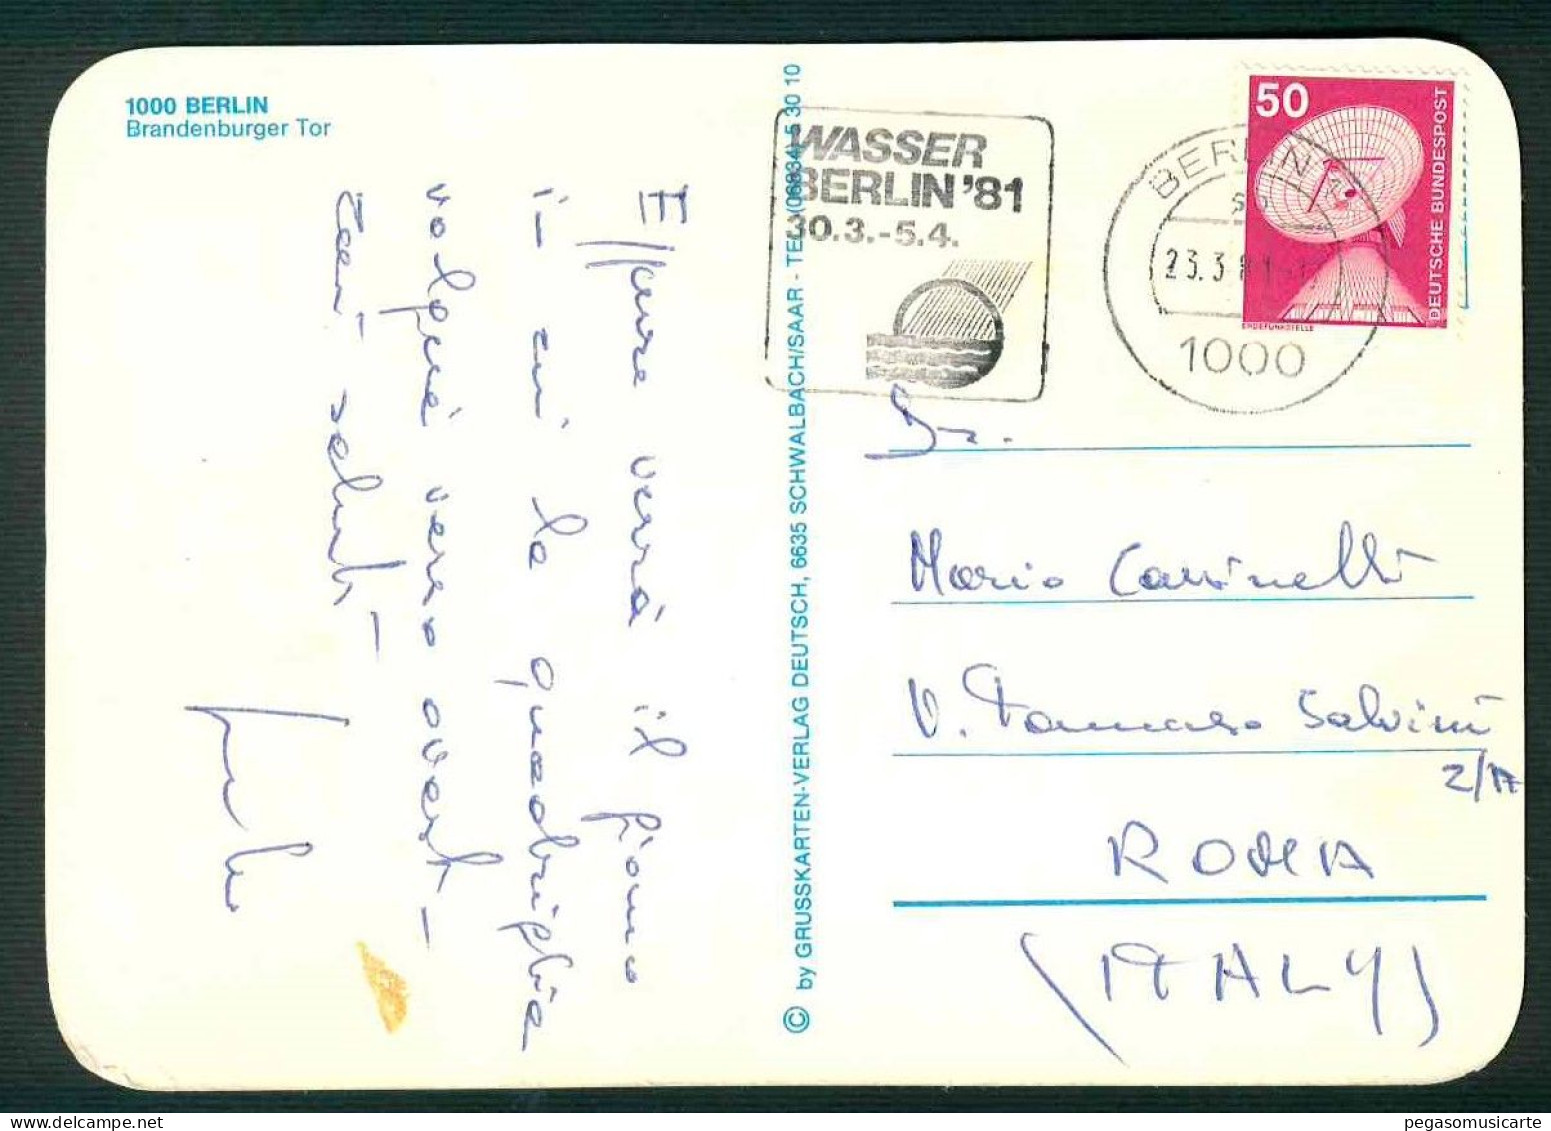 1000 BERLIN
Brandenburger Tor
Eppure verrà il giorno
in cui la quadriglia
volgerà verso ovest –
Cari saluti –
© by GRUSSKARTEN-VERLAG DEUTSCH, 6635 SCHWALBACH/SAAR - TEL. (06834) 5 30 10
WASSER
BERLIN '81
30.3.-5.4.
BERLIN
23.3.81
1000
50
DEUTSCHE BUNDESPOST
ERDEFUNKSTELLE
Dr.
Mario Cassinelli
V. Tommaso Salvini
2/A
ROMA
(ITALY)
pegasomusicarte